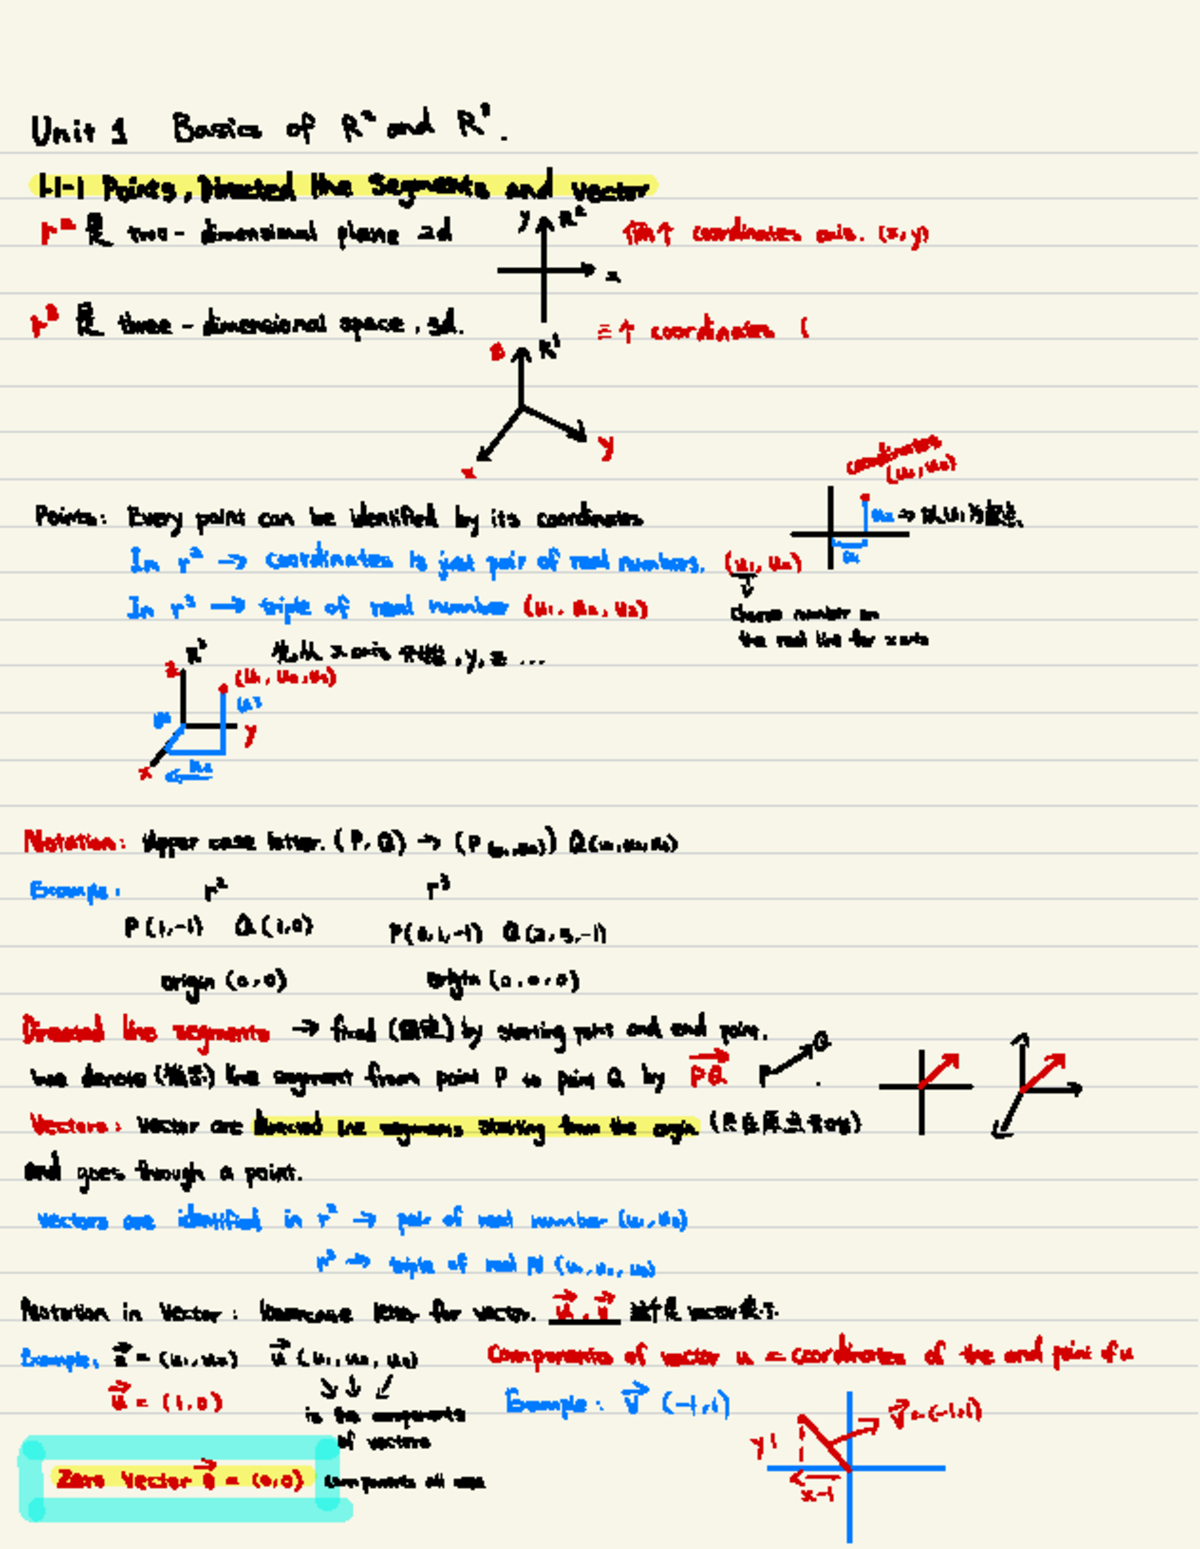 Unit 1 Basics of R² and R³.
1.1-1 Points, Directed line Segments and vector
r² ℝ two-dimensional plane 2d
y R²
x
↑ coordinates axis. (x, y)
r³ ℝ three-dimensional space, 3d.
三个 coordinates (
z R³
y
x
coordinates
(u₁, u₂)
Points: Every point can be identified by its coordinates
u₂ →
u₁
In r² → coordinates is just pair of real numbers. (u₁, u₂)
In r³ → triple of real number (u₁, u₂, u₃)
choose number on
the real line for x axis
R³
x axis , y, z ...
z (u₁, u₂, u₃)
u³
y
x u₂
Notation: Upper case letter. (P, Q) → (P (u₁,u₂)) Q(u₁,u₂,u₃)
Example: r² r³
P(1,-1) Q(1,0) P(0,1,-1) Q(2,3,-1)
origin (0,0) origin (0,0,0)
Directed line segments → fixed (固定) by starting point and end point.
we denote (指示) line segment from point P to point Q by PQ⃗ P Q
Vectors: Vector are directed line segments starting from the origin
and goes through a point.
Vectors are identified in r² → pair of real number (u₁, u₂)
r³ → triple of real N (u₁, u₂, u₃)
Notation in Vector: lowercase letter for vector. u⃗, v⃗ vector
Example: u⃗ = (u₁, u₂) u⃗ (u₁, u₂, u₃) Components of vector u = coordinates of the end point of u
u⃗ = (1,0)
is the components
of vectors
Example: v⃗ (-1,1)
v⃗ = (-1,1)
y 1
x -1
Zero Vector 0⃗ = (0,0) components all zero